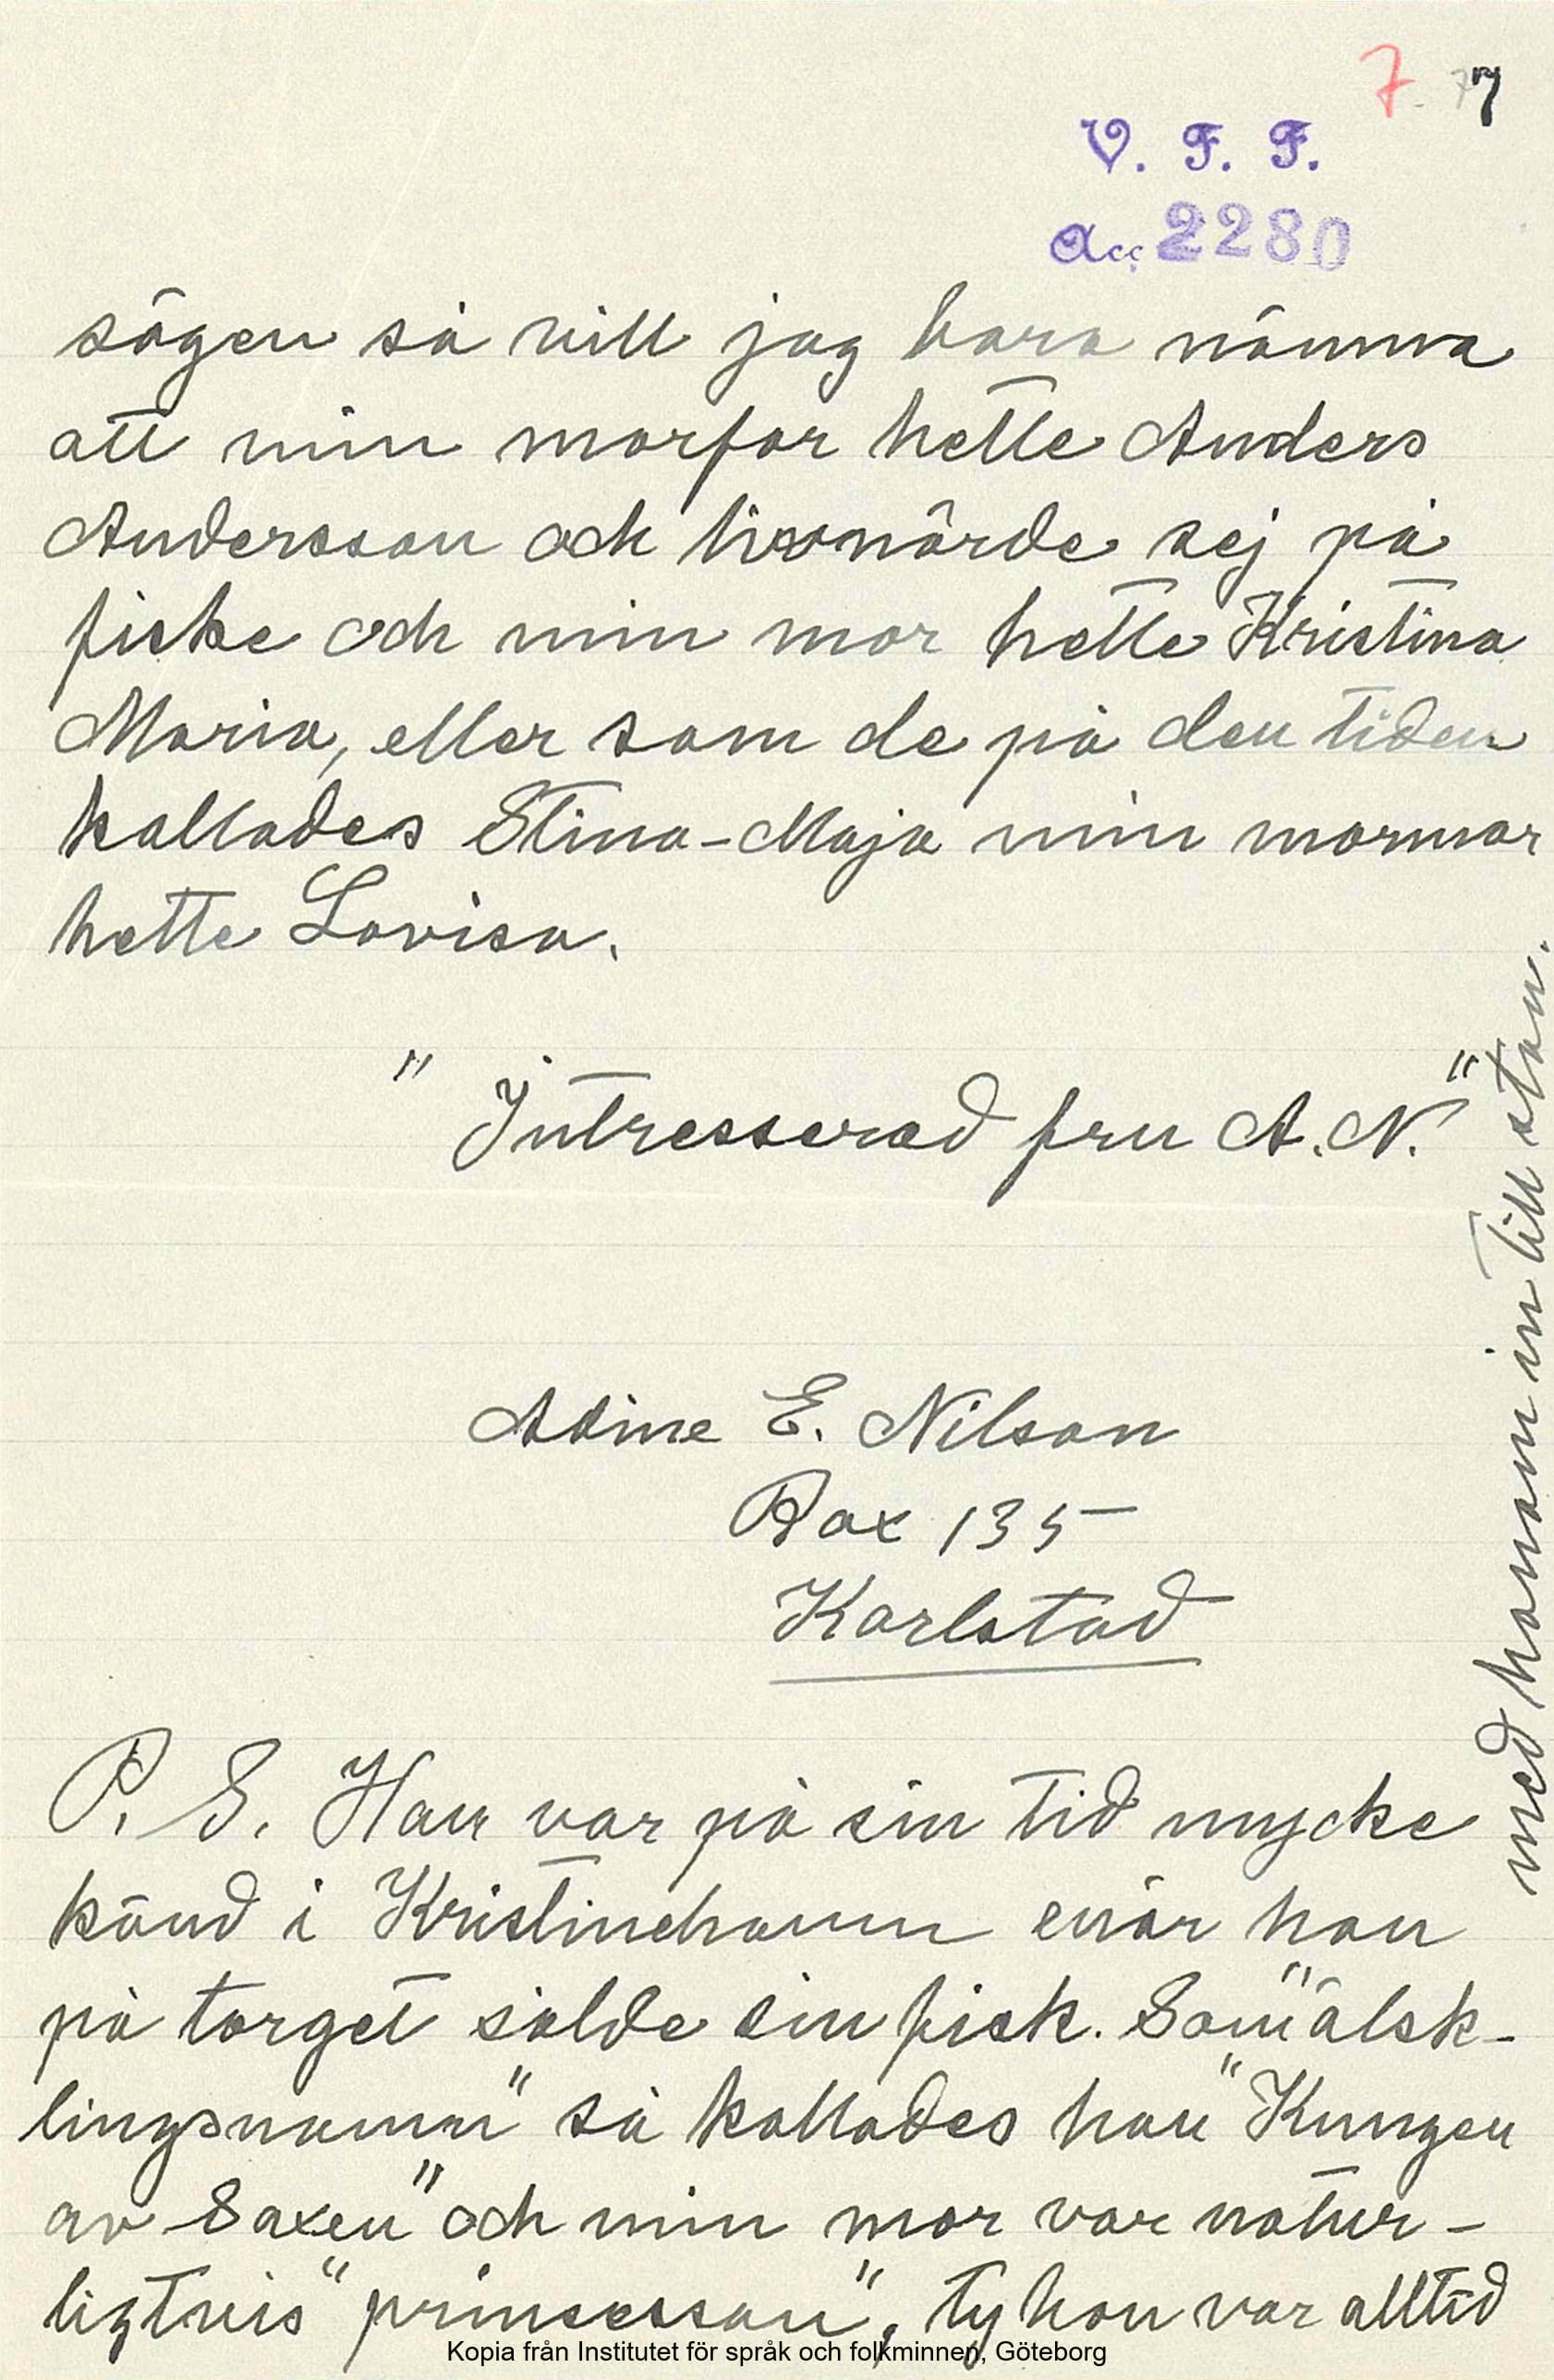 7. 7 7
V. F. F.
Acc. 2280
sägen så vill jag bara nämna
att min morfar hette Anders
Andersson och livnärde sej på
fiske och min mor hette Kristina
Maria, eller som de på den tiden
kallades Stina-Maja min mormor
hette Lovisa.
" Intresserad fru A. N."
Adine E. Nilson
Box 135
Karlstad
P. S. Han var på sin tid mycke
känd i Kristinehamn enär han
på torget sålde sin fisk. Som "älsk-
lingsnamn" så kallades han "Kungen
av Saxen" och min mor var natur-
ligtvis "prinsessan", ty hon var alltid
med honom in till stan.
Kopia från Institutet för språk och folkminnen, Göteborg